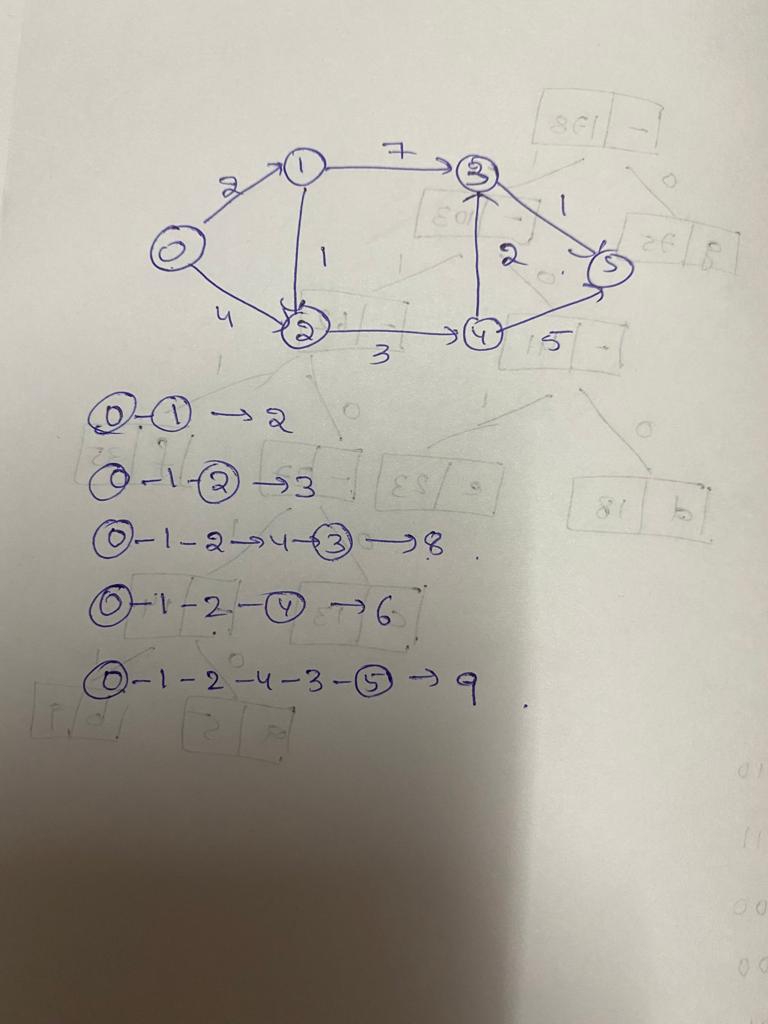 2
1
7
3
1
0
1
2
5
4
2
3
4
5
0-1 → 2
0-1-2 → 3
0-1-2→4→3 → 8
0-1-2-4 → 6
0-1-2-4-3-5 → 9